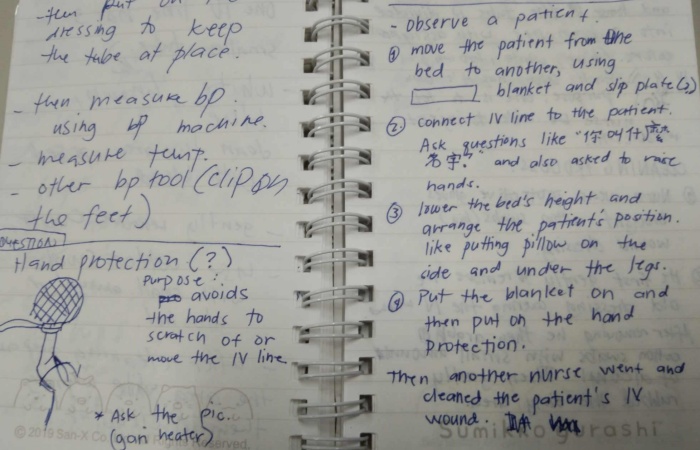 then put on
dressing to keep
the tube at place.
- then measure bp
using bp machine.
- measure temp.
- other bp tool (clip on
the feet)
QUESTION
Hand protection (?)
Purpose:
avoids
the hands to
scratch of or
move the IV line
* Ask the pic.
(gari heater)
© 2019 San-X Co
Reserved.
- observe a patient.
① move the patient from one
bed to another, using
blanket and slip plate(?)
② connect IV line to the patient.
Ask questions like "你叫什麼
名字?" and also asked to raise
hands.
③ lower the bed's height and
arrange the patient's position.
like putting pillow on the
side and under the legs.
④ Put the blanket on and
then put on the hand
protection.
Then another nurse went and
cleaned the patient's IV
wound.
Sumikko gurashi